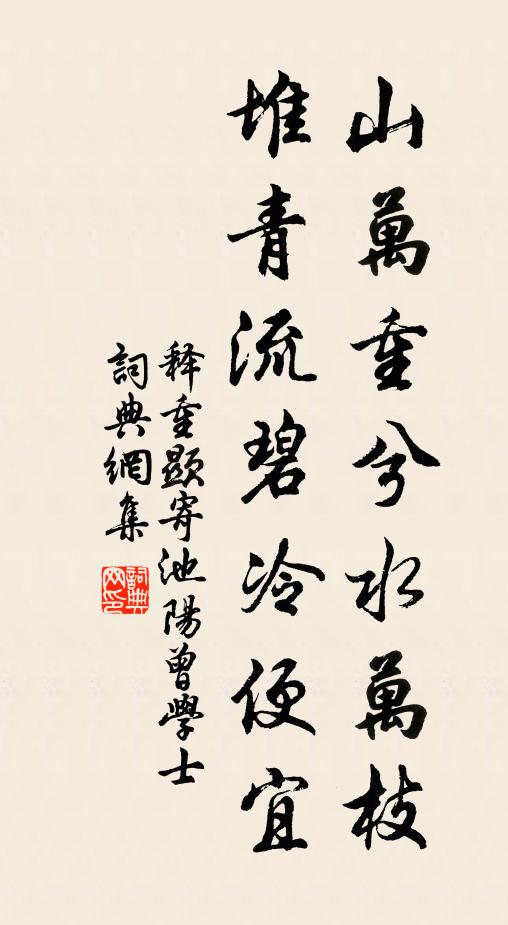 山萬重兮水萬枝
堆青流碧冷便宜
释重顯寄池陽曾學士
詞典網集
詞典網印